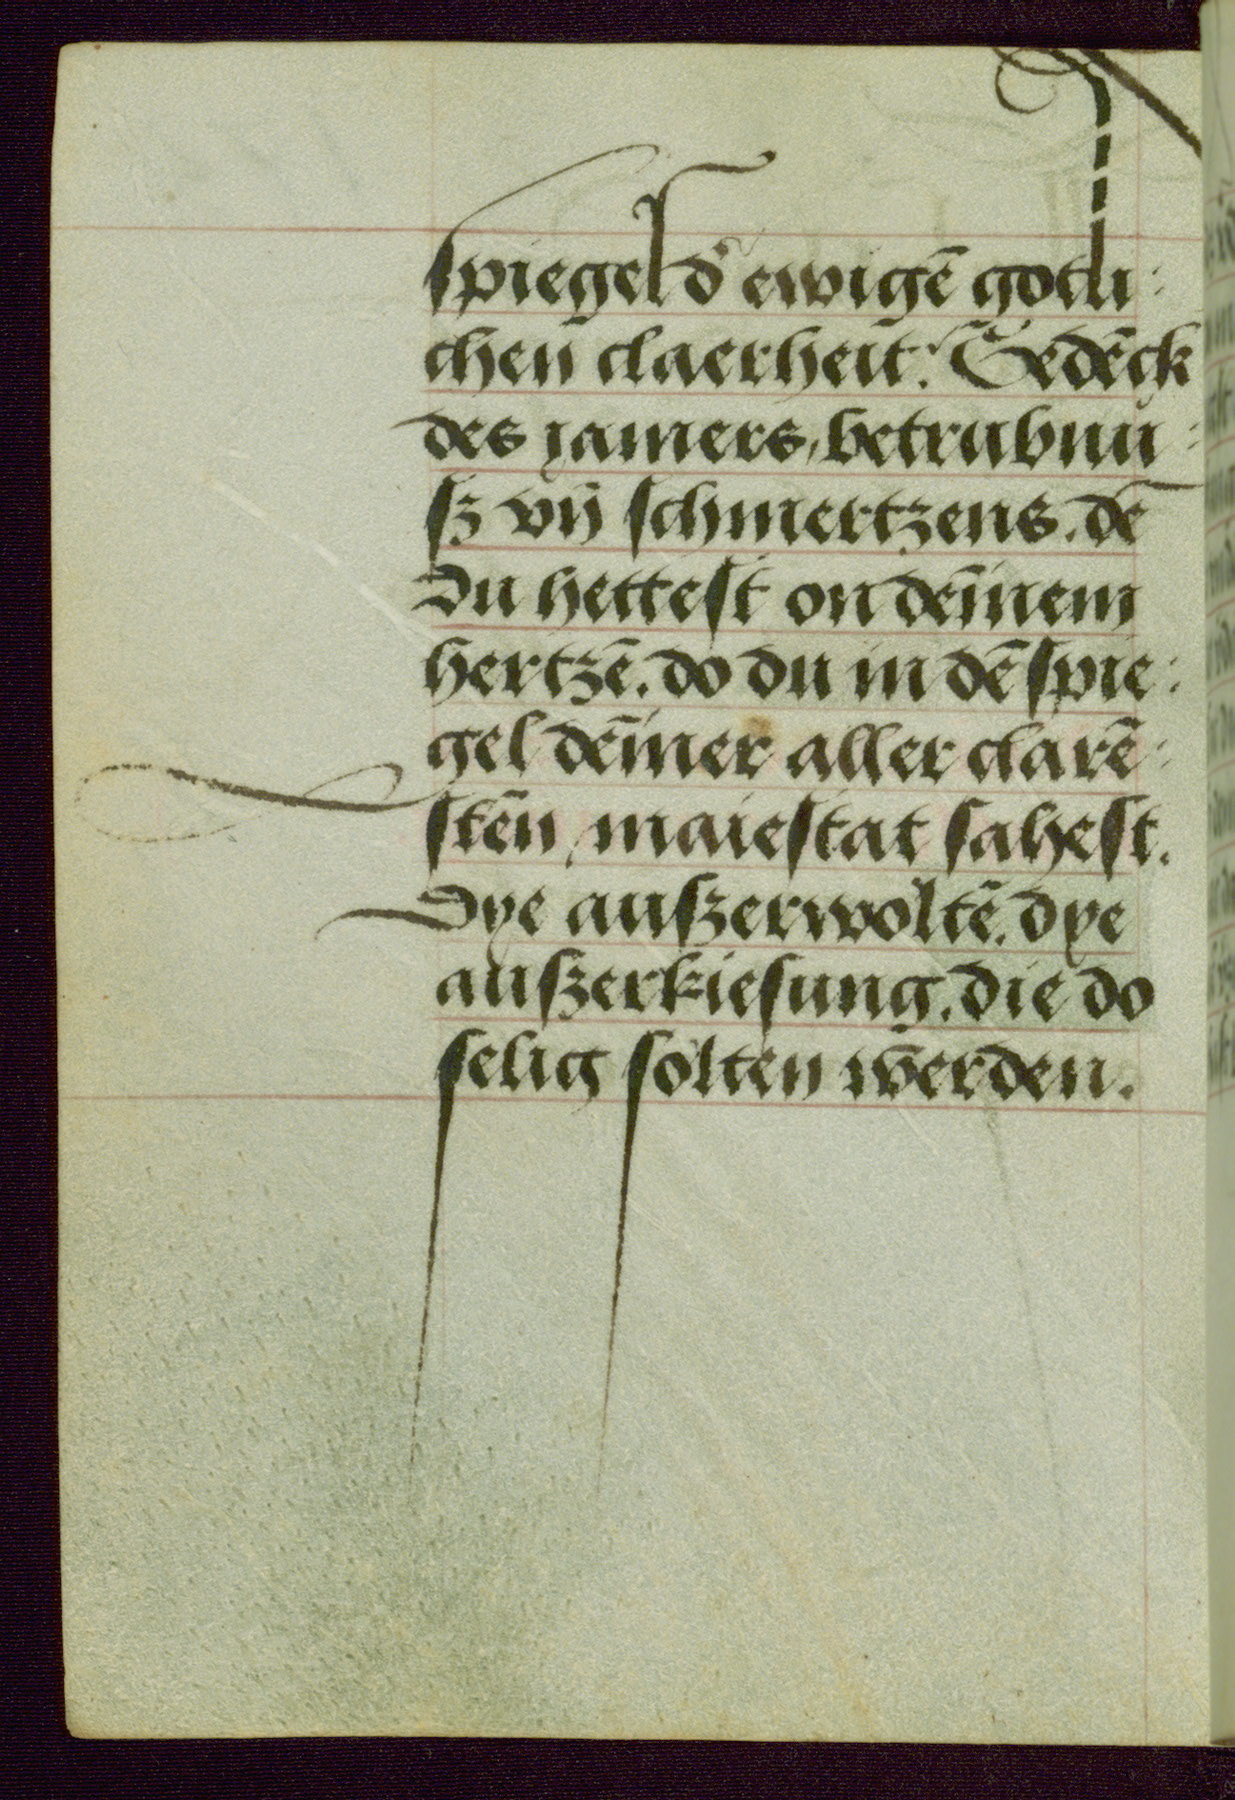 spiegel dˀ ewigē gotli:
chen̄ claerheit. Gedēck
des yamers, betrubnu:
sz vn̄ schmertzens. dē
Du hettest on deinem
hertzē. do du in dē spie:
gel deiner aller clarē:
sten, maiestat sahest.
Dye auszerwoltē. dye
auszerkiesung. die do
selig solten werden.